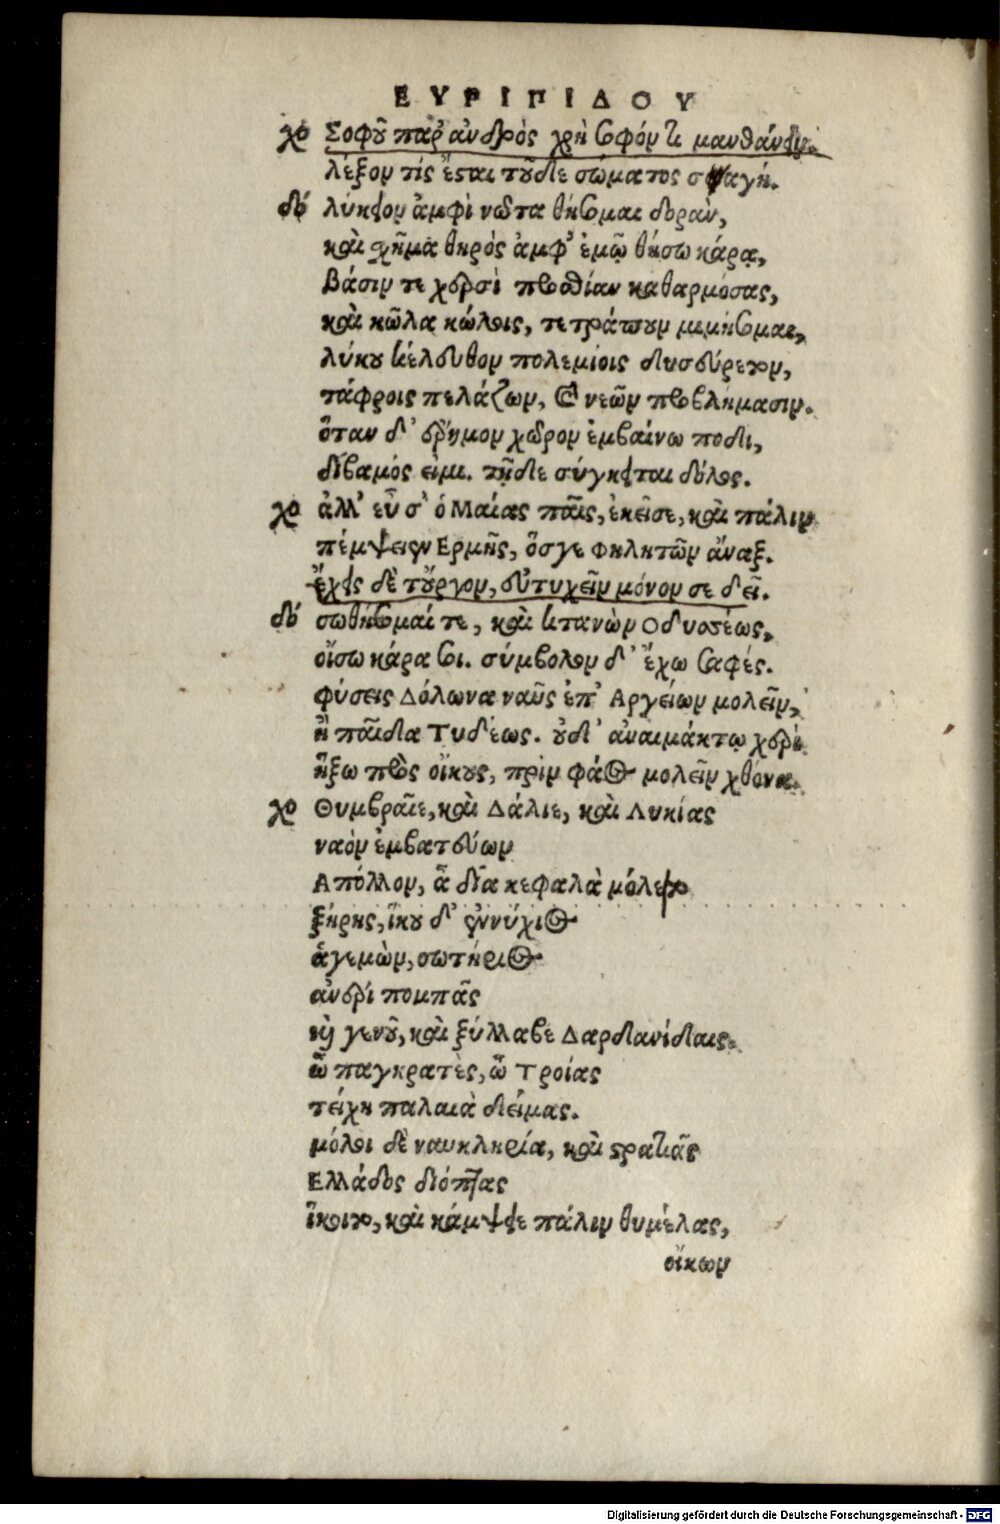 ΕΥΡΙΠΙΔΟΥ
χο Σοφοῦ παρ' ἀνδρὸς χρὴ σοφόν τι μανθάνειν.
λέξον τίς ἔσται τοῦδε σώματος σφαγή.
δό λύκειον ἀμφὶ νῶτα θήσομαι δοράν,
καὶ χῆμα θηρὸς ἀμφ' ἐμῷ θήσω κάρᾳ,
βάσιν τε χερσὶ προσθίαν καθαρμόσας,
καὶ κῶλα κώλοις, τετράπουν μιμήσομαι,
λύκου κέλευθον πολεμίοις δυσεύρετον,
τάφροις πελάζων, καὶ νεῶν προβλήμασιν.
ὅταν δ' ἔρημον χῶρον ἐμβαίνω ποδι,
δίβαμός εἰμι. τῇδε σύγκειται δόλος.
χο ἀλλ' εὖ σ' ὁ Μαίας παῖς, ἐκεῖσε, καὶ πάλιν
πέμψειεν Ερμῆς, ὅσγε Φηλητῶν ἄναξ.
ἔχεις δὲ τοὔργον, εὐτυχεῖν μόνον σε δεῖ.
δό σωθήσομαί τε, καὶ κτανὼν Οδυσσέως,
οἴσω κάρα σοι. σύμβολον δ' ἔχω σαφές.
φύσεις Δόλωνα ναῦς ἐπ' Αργείων μολεῖν,
ἢ παῖδα Τυδέως. οὐδ' ἀναιμάκτῳ χερὶ
ἥξω πρὸς οἴκους, πρὶν φάος μολεῖν χθόνα.
χο Θυμβραῖε, καὶ Δάλιε, καὶ Λυκίας
ναὸν ἐμβατεύων
Απόλλον, ἆ δῖα κεφαλὰ μόλε το
ξήρης, ἵκου δ' ἐννύχιος
ἁγεμὼν, σωτήριος
ἀνέρι πομπᾶς
καὶ γενοῦ, καὶ ξύλλαβε Δαρδανίδαις.
ὦ παγκρατὲς, ὦ Τροίας
τείχη παλαιὰ δείμας.
μόλοι δὲ ναυκληρία, καὶ στρατιᾶς
Ελλάδος διόπτας
ἵκοιτο, καὶ κάμψειε πάλιν θυμέλας,
οἴκων
Digitalisierung gefördert durch die Deutsche Forschungsgemeinschaft - DFG